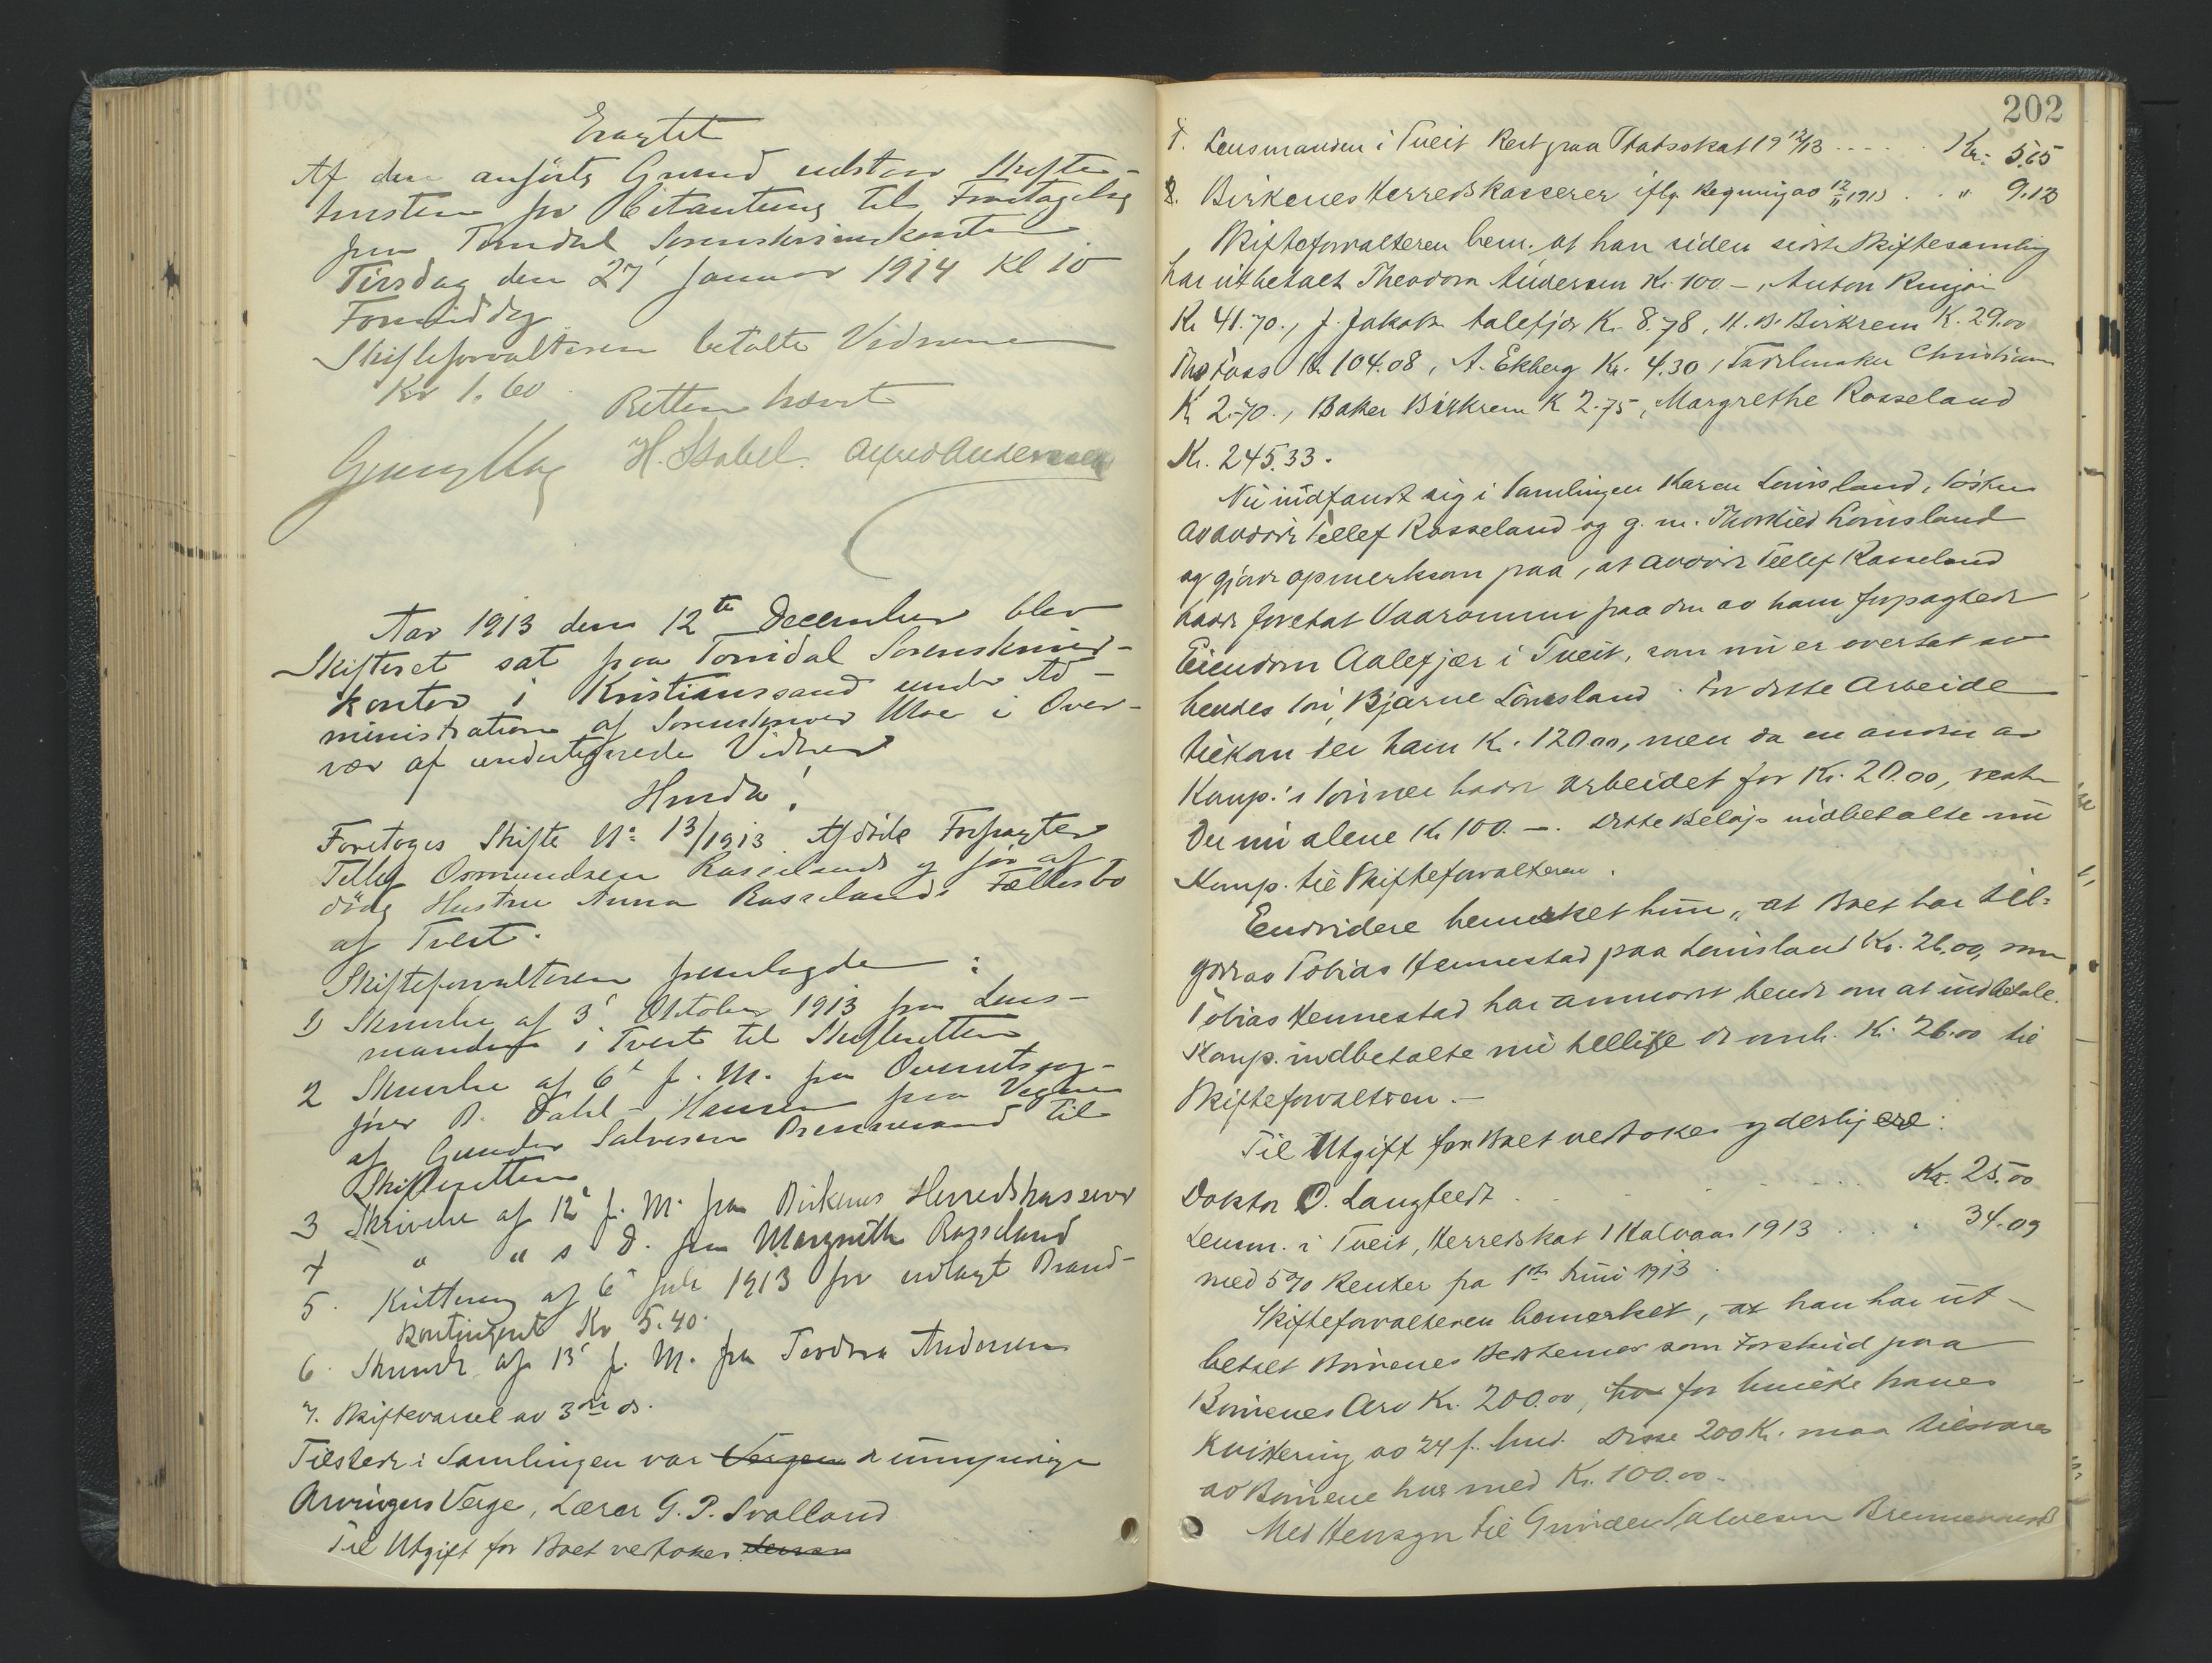 Eragtet
Af den anførte Grund udstaar Skifte-
husten for Citanteng til Foretagelse
paa Torridal Sorenskriverkontor
Tirsdag den 27' Januar 1914 Kl 10
Formiddag
Skifteforvalteren betalte Vidnerne
Kr 1.60.
Retten hævet
H. Stabel. Alfred Andersen
Aar 1913 den 12te December blev
Skifteret sat paa Torridal Sorenskriver-
kontor i Kristianssand under Ad-
ministration af Sorenskriver Moe i Over-
vær af undertegnede Vidner
Hvorda!
Foretoges Skifte No 13/1913 Afdøde Forpagter
Tellef Osmundsen Rosselands og før af
døde Hustru Anna Rosselands Fællesbo
af Tveit.
Skifteforvalteren fremlagde:
1) Skrivelse af 3' Oktober 1913 fra Lens-
manden i Tveit til Skifteretten
2 Skrivelse af 6' f. M. fra Overretssag-
fører B. Dahl-Hansen paa Vegne
af Gunder Salvesen Brennemoend til
Skifteretten
3 Skrivelse af 12' f. M. fra Birkenes Herredskasserer
4 " " s D. fra Margrethe Rosseland
5. Kvittering af 6' Juli 1913 for udlagt Brand-
kontingent Kr 5.40.
6. Skrivelse af 13' f. M. fra Teodora Andersen
7. Skiftevarsel av 3die ds.
Tilstede i Samlingen var Vergen de umyndige
Arvingers Verge, Lærer G. P. Svalland
Til Utgift for Boet vedtokes
202
7. Lensmanden i Tveit Rest paa Statsskat 19 12/13 .... Kr: 5.65
8. Birkenes Herredskasserer iflg. Regning av 12/11 1913 . . " 9.12
Skifteforvalteren bem. at han siden sidste Skiftesamling
har utbetalt Theodora Andersen Kr. 100 –, Anton
Kr 41.70., J. Jakobs. Aalefjær Kr. 8.78, H. B. Birkrem K. 29.00
Foss Kr 104.08, A. Ekberg Kr. 4.30, Sadelmaker Christians
Kr 2.70., Baker Birkrem K 2.75, Margrethe Rosseland
Kr. 245.33.
Nu indfandt sig i Samlingen Karen Lonisland, Søster
av avdøde Tellef Rosseland og g. m. Lonisland
og gjorde opmerksom paa, at avdøde Tellef Rosseland
hadde foretat Vaaronnen paa den av ham forpagtede
Eiendom Aalefjær i Tveit, som nu er overtat av
hendes Søn, Bjarne Lonisland. For dette Arbeide
tilkom der ham Kr. 120.00, men da en anden av
Komp.'s Sønner hadde arbeidet for Kr. 20.00, rester
der nu alene Kr 100. –. Dette Beløp indbetalte nu
Komp. til Skifteforvalteren.
Endvidere bemerket hun, at Boet har til-
gode av Tobias Hennestad paa Lonisland Kr. 26.00, som
Tobias Hennestad har anmodet hende om at indbetale.
Komp. indbetalte nu tillike de omh. Kr. 26.00 til
Skifteforvalteren. –
Til Utgift for Boet vedtokes yderligere:
Doktor O. Langfeldt . . . . . Kr. 25.00
Lensm. i Tveit, Herredskat 1 Halvaar 1913 . . " 34.09
med 5% Renter fra 1ste Juni 1913.
Skifteforvalteren bemerket, at han har ut-
betalt Børnenes Bedstemor som Forskud paa
Børnenes Arv Kr. 200.00, for hvilke hans
Kvittering av 24 f. hvd. Disse 200 Kr. maa tilsvares
av Børnene hver med Kr. 100.00.
Med Hensyn til Gunder Salvesen